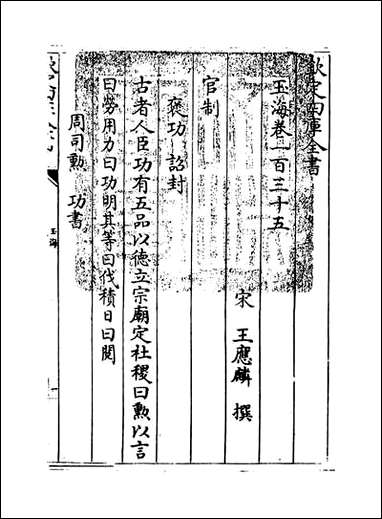 欽定四庫全書
玉海卷一百三十五
宋 王應麟 撰
官制
褒功 詔封
古者人臣功有五品以德立宗廟定社稷曰勲以言
曰勞用力曰功明其等曰伐積日曰閱
周司勲 功書
玉海
一